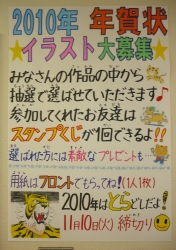 2010年 年賀状
★イラスト大募集★
みなさんの作品の中から
抽選で選ばせていただきます♪
参加してくれたお友達は
スタンプくじが1回できるよ!!
選ばれた方には素敵なプレゼントも…
用紙はフロントでもらってね!(1人1枚)
2010年はとらどしだよ!
11月10日(火)締め切り